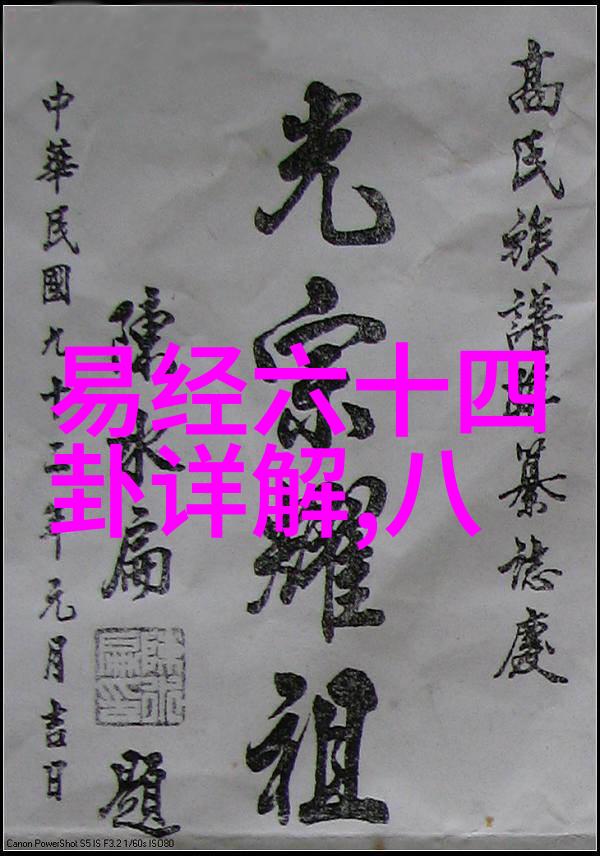 高氏族譜編纂誌慶
光宗耀祖
陳水扁
題
中華民國九十二年元月吉日
陳水扁印
易经六十四
卦详解,八
Canon PowerShot S5 IS F3.2 1/60s ISO80